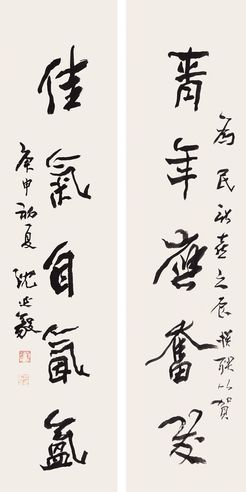 青年應奮發
為民之辰撰聯以賀
佳氣自氤氳
庚申初夏 沈延毅